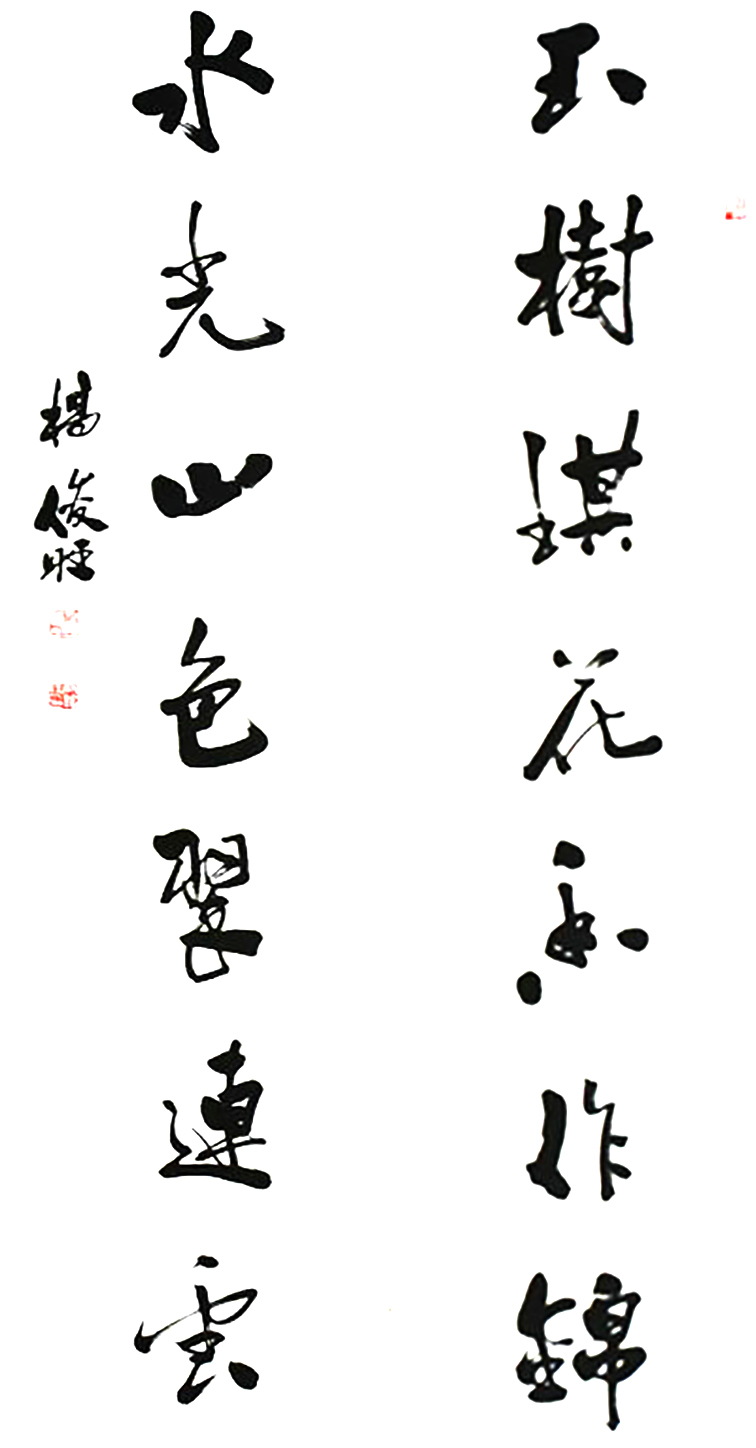 玉樹琪花香作錦
水光山色翠連雲
楊俊旺